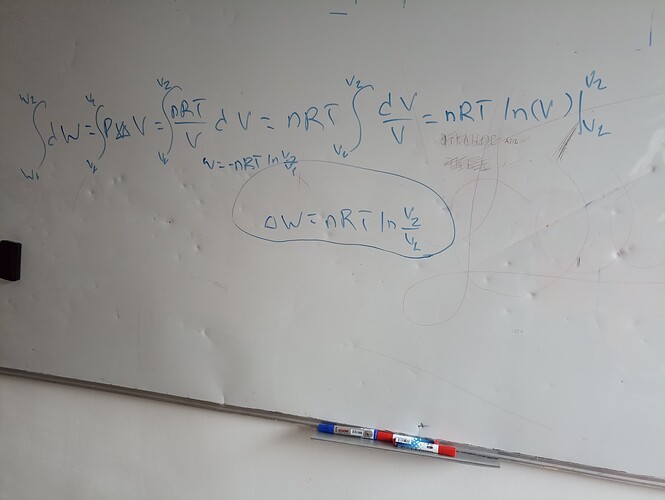 ∫_{W₁}^{W₂} dW = ∫_{V₁}^{V₂} PdV = ∫_{V₁}^{V₂} nRT/V dV = nRT ∫_{V₁}^{V₂} dV/V = nRT ln(V) |_{V₁}^{V₂}
W = -nRT ln V₂/V₁
ΔW = nRT ln V₂/V₁